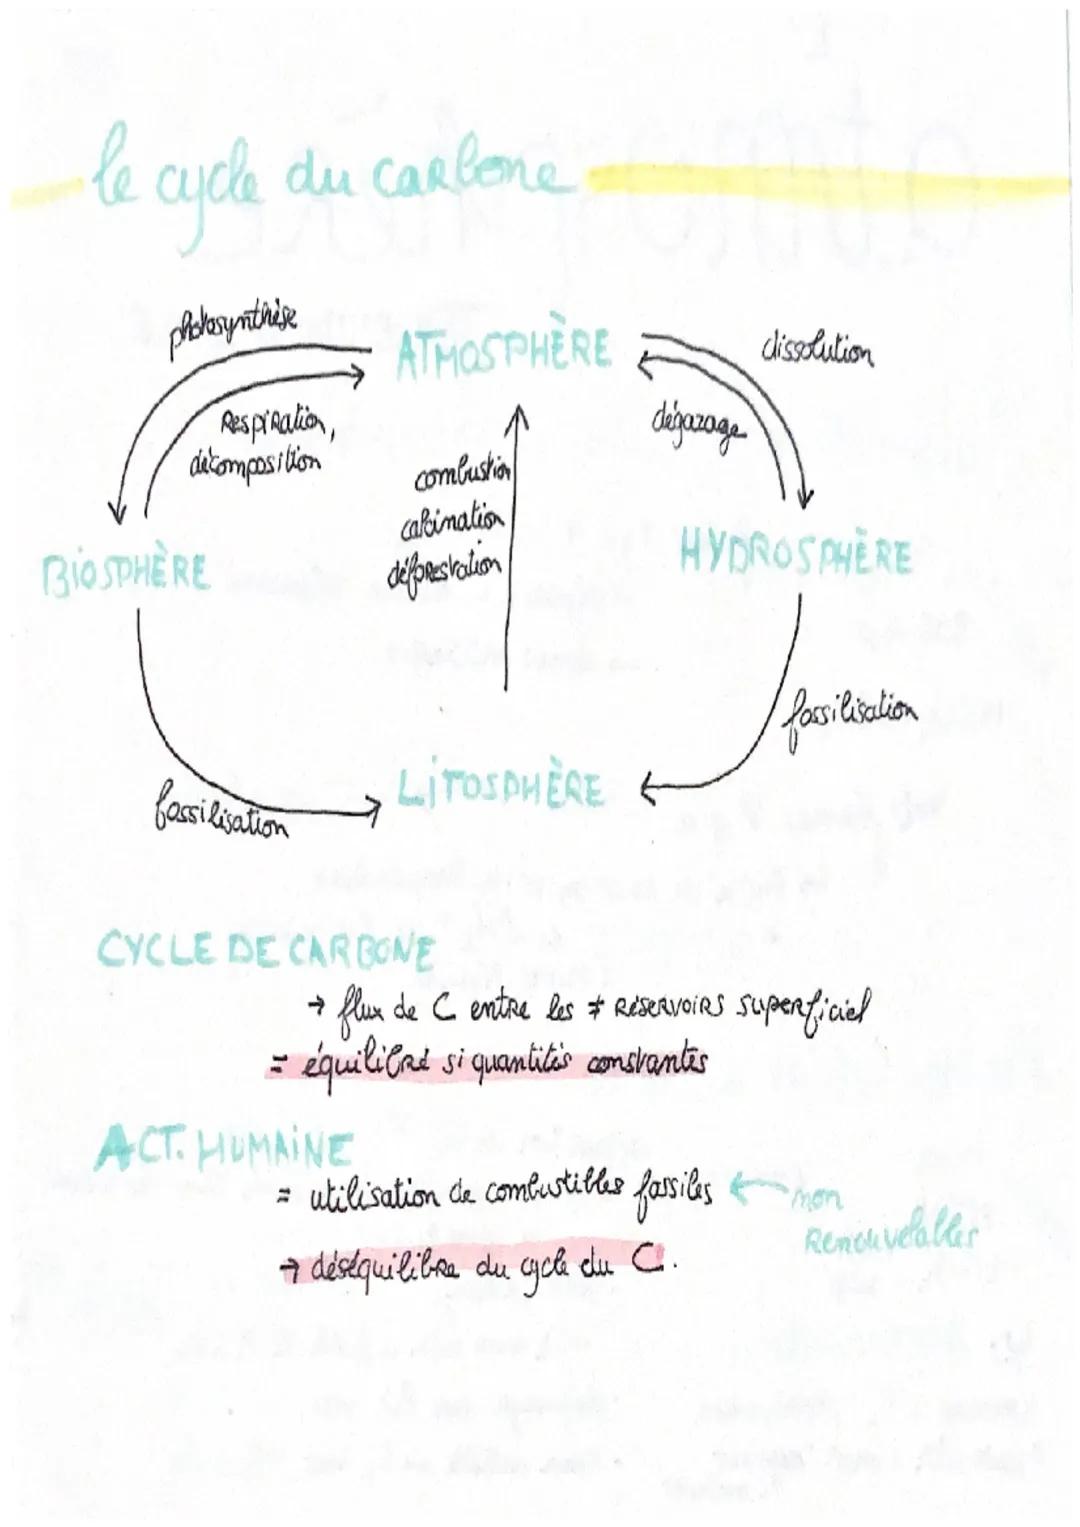 le cycle du carbone
photosynthèse
ATMOSPHÈRE
dissolution
Respiration,
décomposition
dégazage
combustion
calcination
déforestation
BIOSPHÈRE
HYDROSPHÈRE
fossilisation
LITOSPHÈRE
fossilisation
CYCLE DE CARBONE
→ flux de C entre les ≠ RÉSERVOIRS superficiel
= équilibré si quantités constantes
ACT. HUMAINE
= utilisation de combustibles fossiles ← non
Renouvelables
→ déséquilibre du cycle du C.